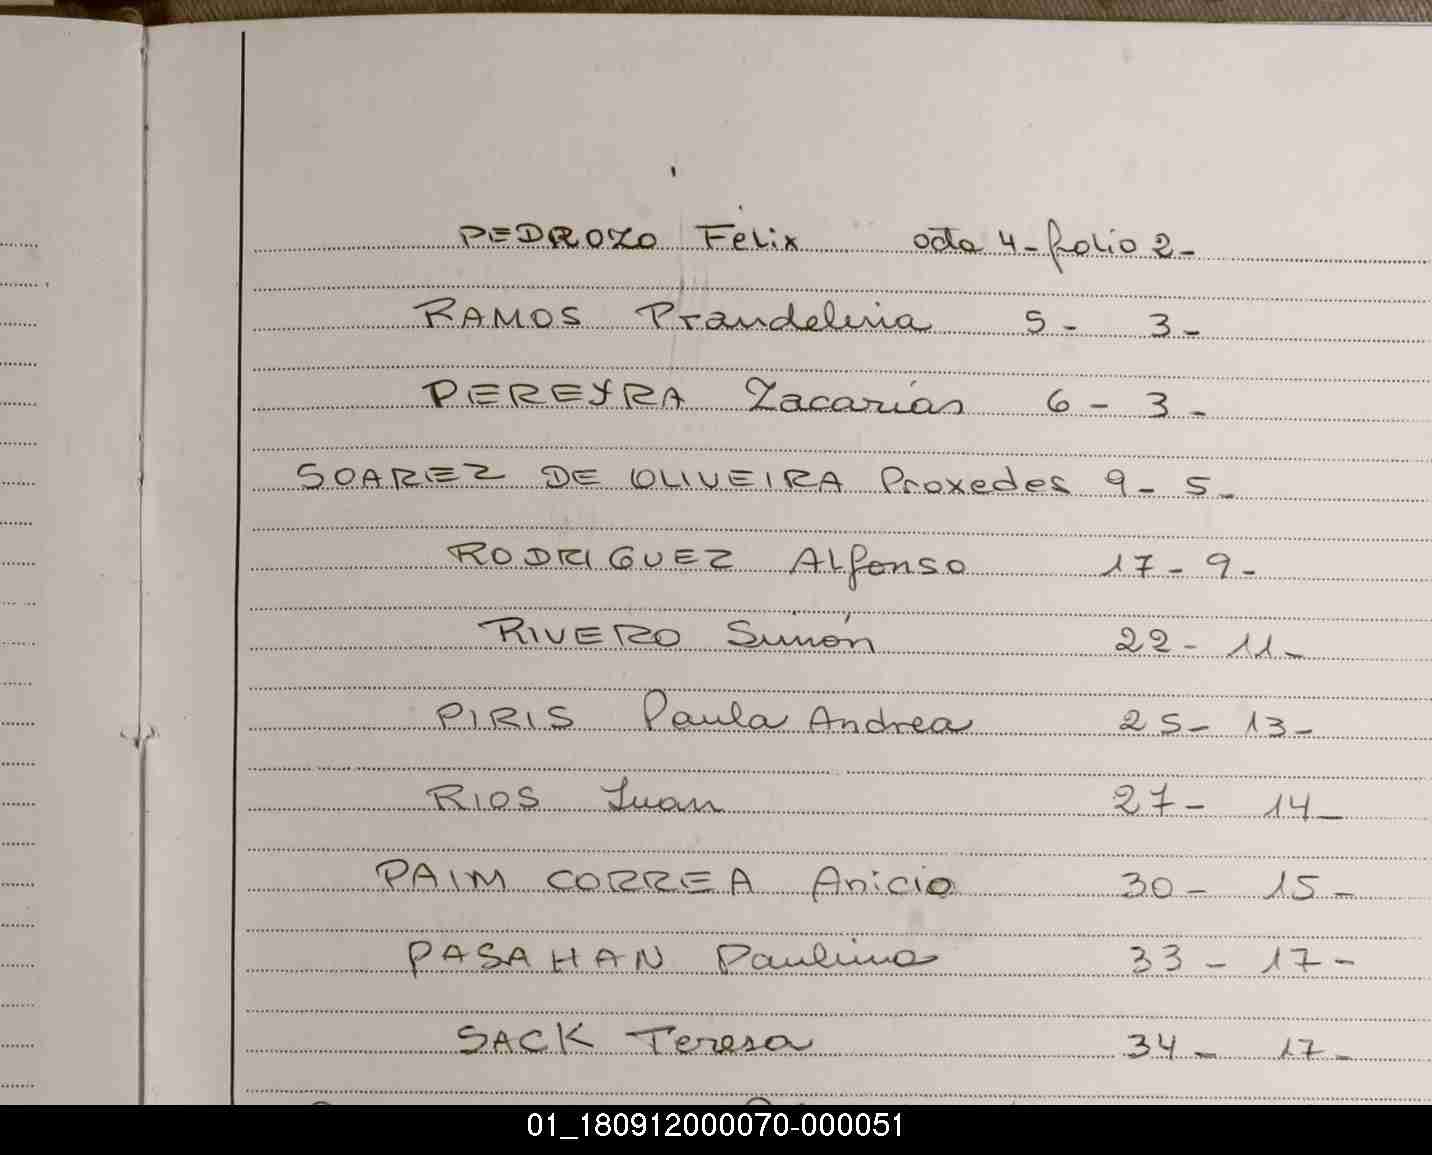 PEDROZO Felix acta 4- folio 2-
RAMOS Prandelina 5- 3-
PEREYRA Zacarías 6- 3-
SOAREZ DE OLIVEIRA Proxedes 9- 5-
RODRIGUEZ Alfonso 17- 9-
RIVERO Simón 22- 11-
PIRIS Paula Andrea 25- 13-
RIOS Juan 27- 14-
PAIM CORREA Anicio 30- 15-
PASAHAN Paulino 33- 17-
SACK Teresa 34- 17-
01_180912000070-000051